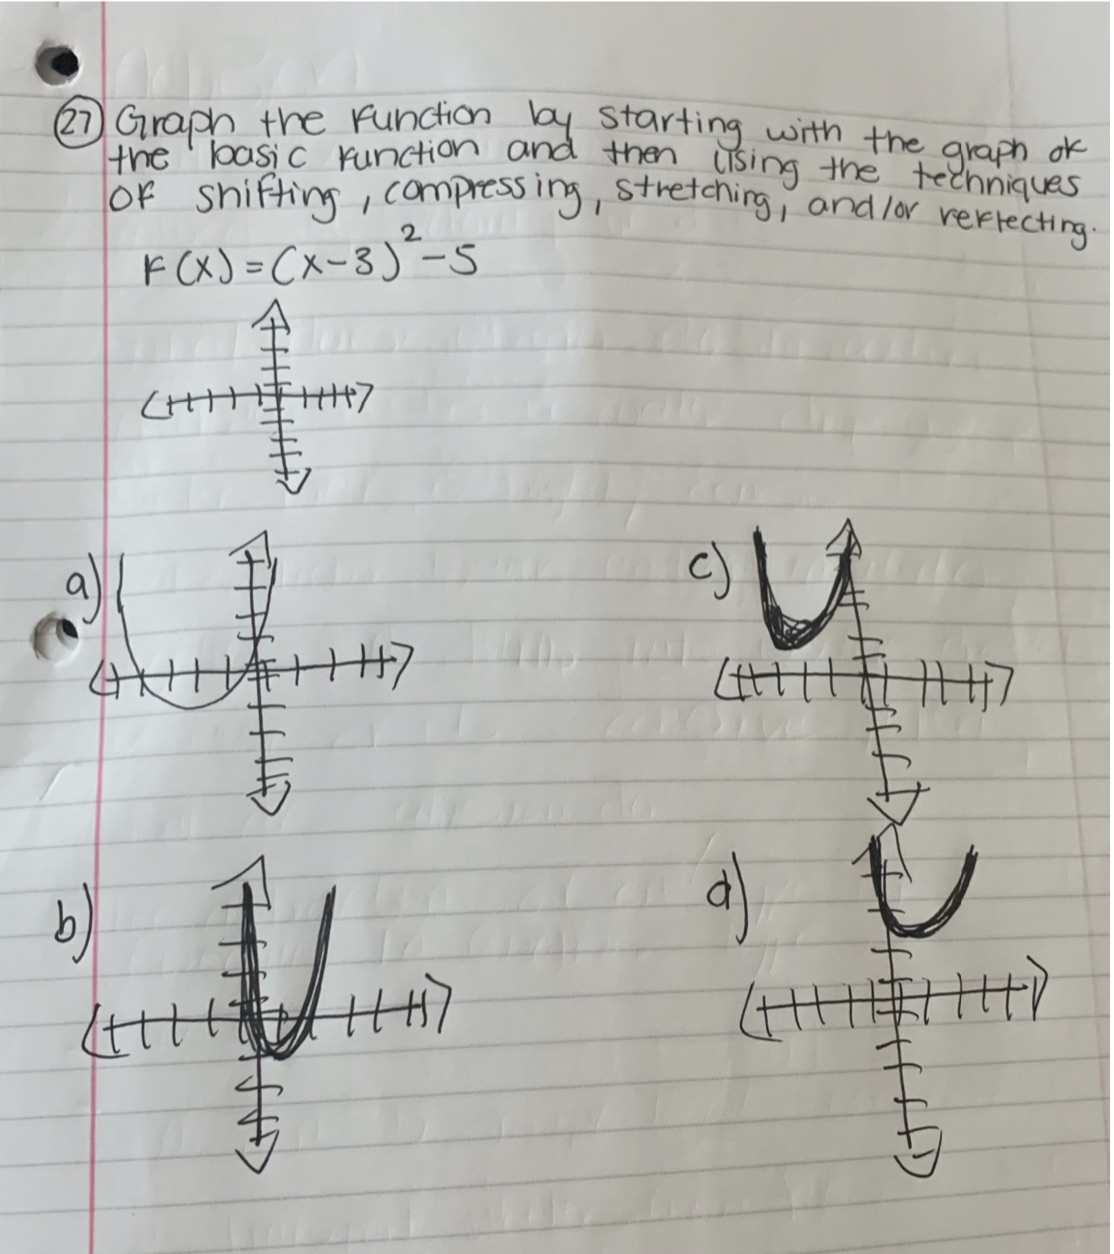 27) Graph the function by starting with the graph of
the basic function and then using the techniques
of shifting, compressing, stretching, and/or reflecting.
F(x) = (x-3)² - 5
a)
c)
b)
d)